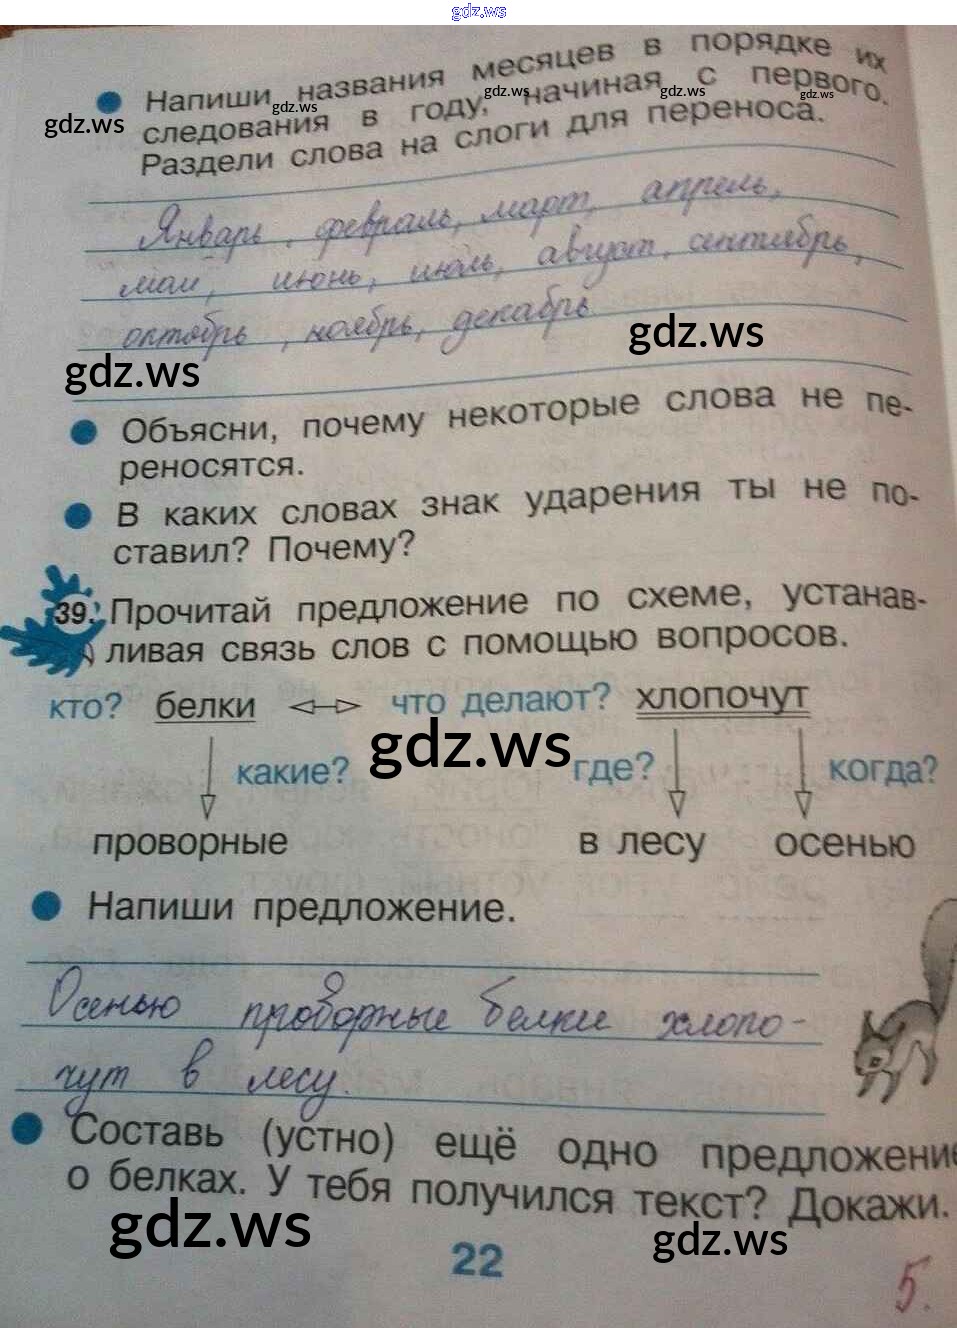 gdz.ws
Напиши названия месяцев в порядке их
следования в году, начиная с первого.
Раздели слова на слоги для переноса.
gdz.ws gdz.ws gdz.ws gdz.ws gdz.ws
Январь, февраль, март, апрель,
май, июнь, июль, август, сентябрь,
октябрь, ноябрь, декабрь
gdz.ws
gdz.ws
Объясни, почему некоторые слова не пе-
реносятся.
В каких словах знак ударения ты не по-
ставил? Почему?
39. Прочитай предложение по схеме, устанав-
ливая связь слов с помощью вопросов.
кто? белки что делают? хлопочут
gdz.ws
какие? где? когда?
проворные в лесу осенью
Напиши предложение.
Осенью проворные белки хлопо-
чут в лесу.
Составь (устно) ещё одно предложение
о белках. У тебя получился текст? Докажи.
gdz.ws
gdz.ws
22
5.